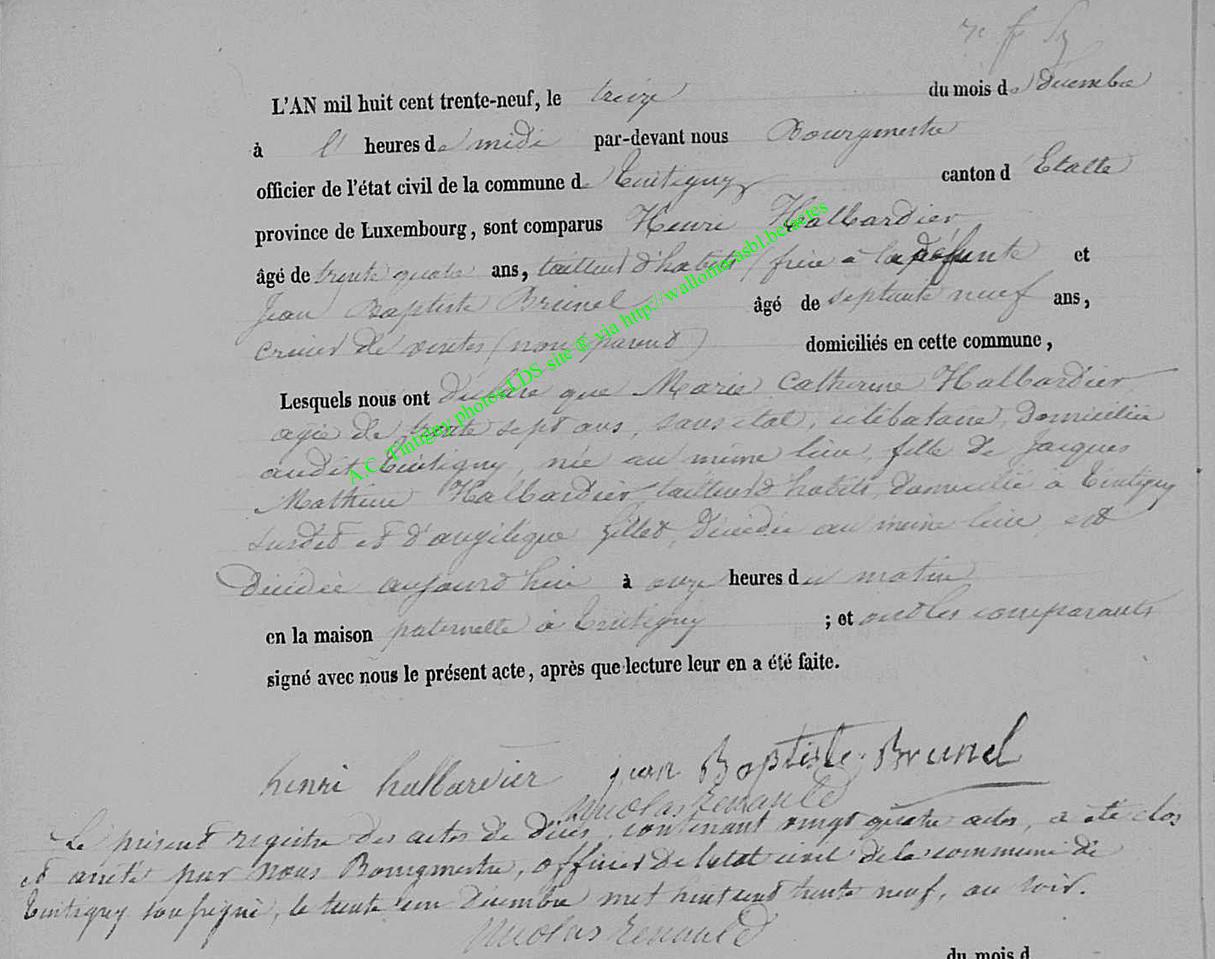 L'AN mil huit cent trente-neuf, le treize du mois de décembre
à l' heures de midi par-devant nous Bourgmestre
officier de l'état civil de la commune de Tintigny canton d Etalle
province de Luxembourg, sont comparus Henri Halbardier
âgé de trente quatre ans, tailleur d'habits (frère à la défunte et
Jean Baptiste Brunel âgé de septante neuf ans,
crieur de ventes (non parent) domiciliés en cette commune,
Lesquels nous ont déclaré que Marie Catherine Halbardier
agée de trente sept ans, sans état, célibataire, domiciliée
audit Tintigny, née au même lieu, fille de Jacques
Mathieu Halbardier, tailleur d'habits, domicilié à Tintigny
susdit et d'angélique Gillet, décédée au même lieu, est
Décédée aujourd'hui à onze heures du matin
en la maison paternelle à Tintigny ; et ont les comparants
signé avec nous le présent acte, après que lecture leur en a été faite.
henri halbardier jean Baptiste Brunel
Nicolas Renauld
Le présent registre des actes de décès, contenant vingt quatre actes, a été clos
et arrêté par nous Bourgmestre, officier de l'état civil de la commune de
Tintigny soussigné, le trente un Décembre mil huit cent trente neuf, au soir.
Nicolas Renauld
du mois d
A.C. Tintigny photos LDS-site ® via http://wallonia-asbl.be/actes